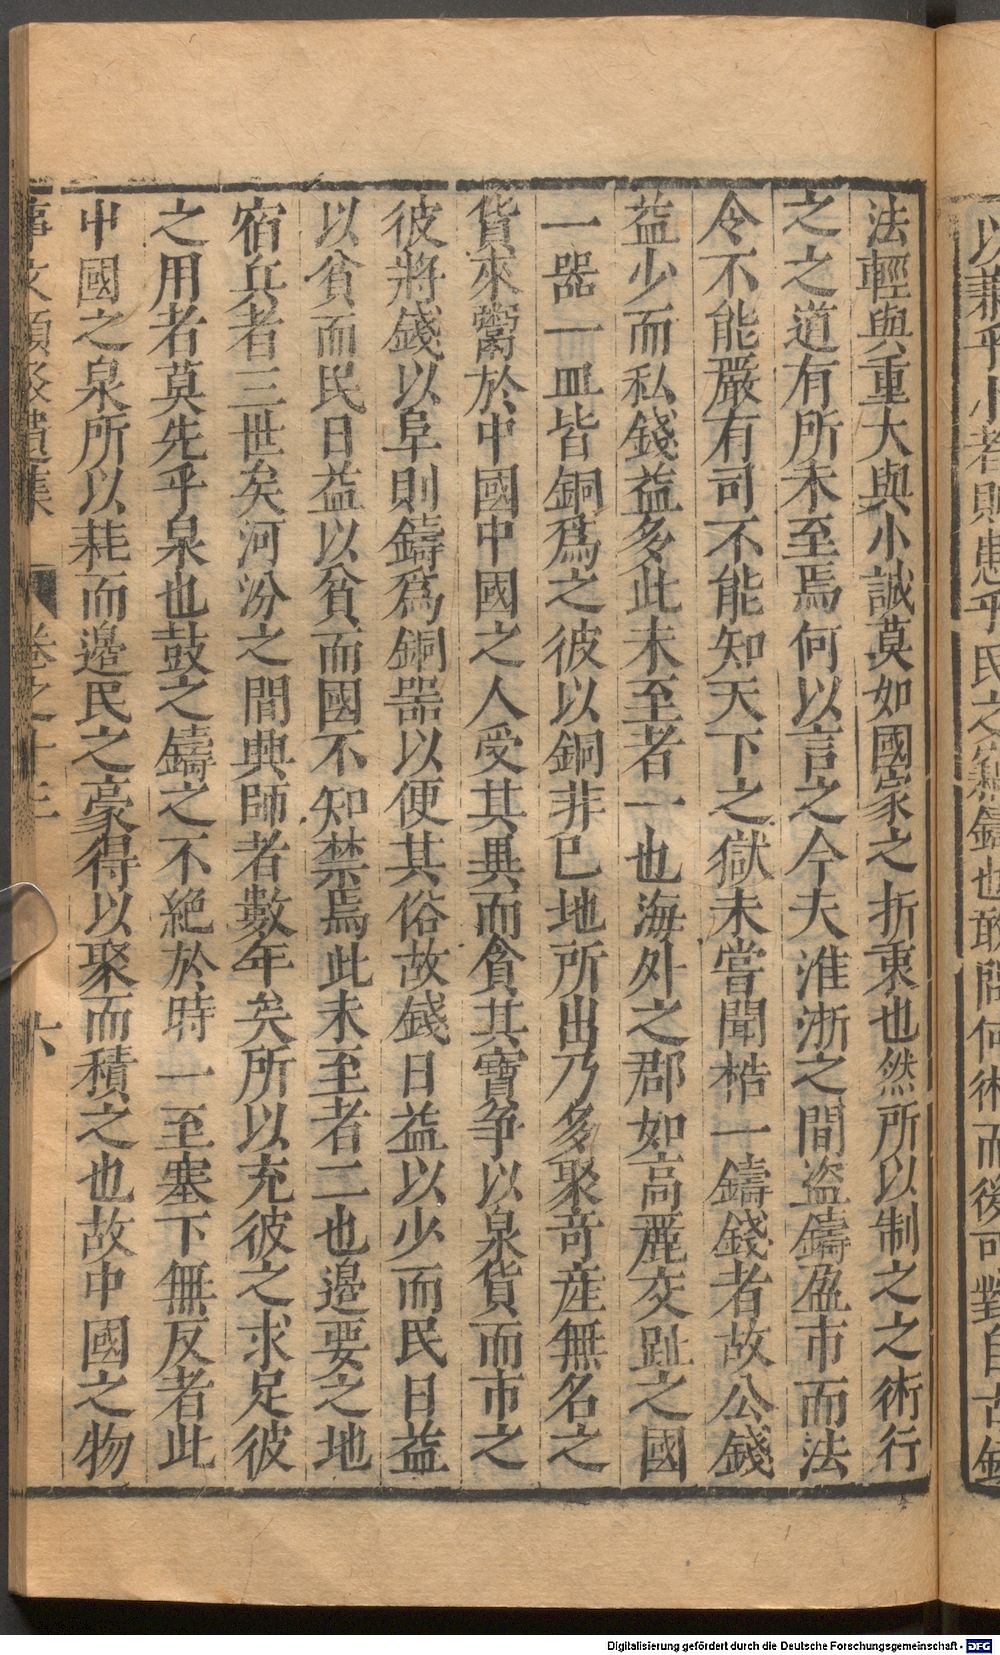 以兼乎小者則患乎民之竊鑄也敢問何術而後可對自古錢
法輕與重大與小誠莫如國家之折衷也然所以制之之術行
之之道有所未至焉何以言之今夫淮浙之間盜鑄盈市而法
令不能嚴有司不能知天下之獄未嘗聞梏一鑄錢者故公錢
益少而私錢益多此未至者一也海外之郡如高麗交趾之國
一器一皿皆銅爲之彼以銅非已地所出乃多聚奇産無名之
貨來鬻於中國中國之人受其異而貪其寶争以泉貨而市之
彼將錢以阜則鑄爲銅器以便其俗故錢日益以少而民日益
以貧而民日益以貧而國不知禁焉此未至者二也邉要之地
宿兵者三世矣河汾之間興師者數年矣所以充彼之求足彼
之用者莫先乎泉也鼓之鑄之不絶於時一至塞下無反者此
中國之泉所以耗而邉民之豪得以聚而積之也故中國之物
事文類聚遺集 卷之十三 六
Digitalisierung gefördert durch die Deutsche Forschungsgemeinschaft - DFG